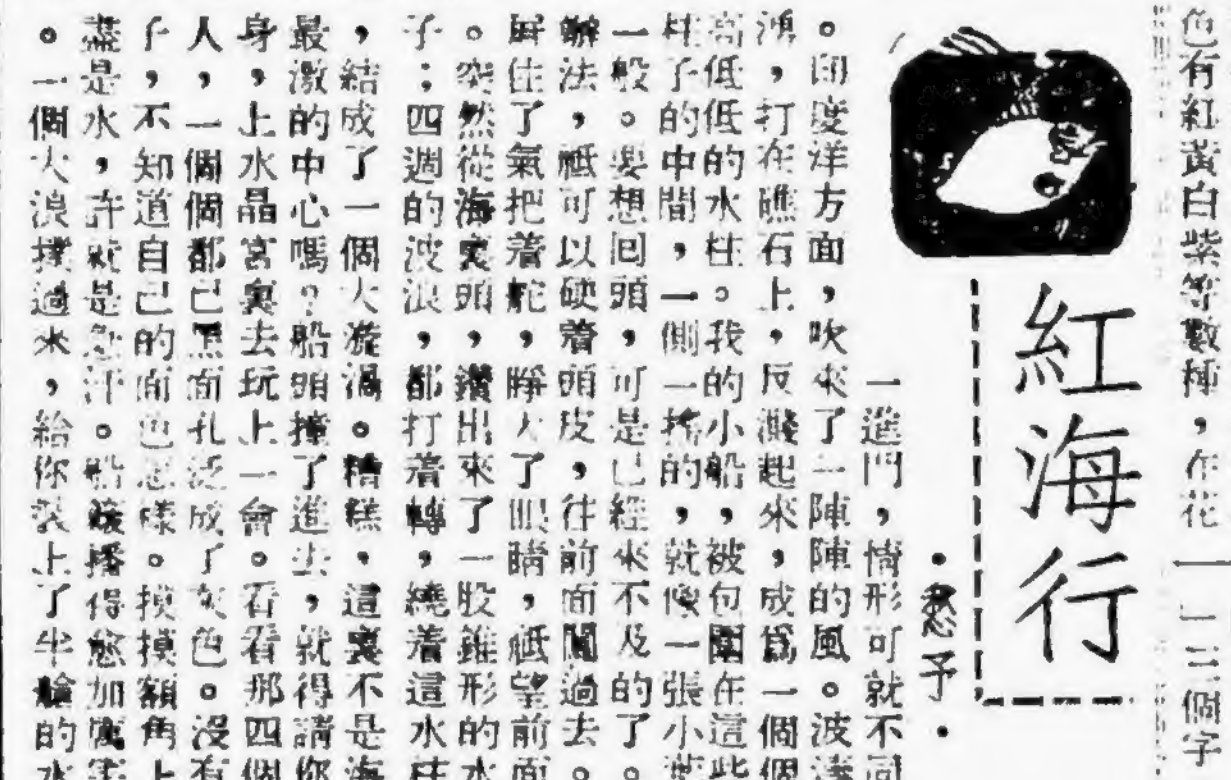 色有紅黃白紫等數種，在花一
一三個字
紅海行
予
一進門，情形可就不同
。印度洋方面，吹來了一陣陣的風。波濤
，打在礁石上，反濺起來，成爲一個個
高低低的水柱。我的小船，被包圍在這些
柱子的中間，一側一搖的，就像一張小葉
一般。要想回頭，可是已經來不及的了。
辦法，祗可以硬着頭皮，往前面闖過去。
屏住了氣把着舵，睜大了眼睛，祗望前面
。突然從海裏頭，鑽出來了一股錐形的水
子；四週的波浪，都打着轉，繞着這水柱
，結成了一個大漩渦。糟糕，這裏不是海
最激的中心嗎？船頭撞了進去，就得請你
身，上水晶宮裏去玩上一會。看看那四個
人，一個個都已黑面孔泛成了灰色。沒有
子，不知道自己的面也怎樣。摸摸額角上
盡是水，許就是急汗。船簸播得愈加厲害
。一個大浪撲過來，給你裝上了半艙的水